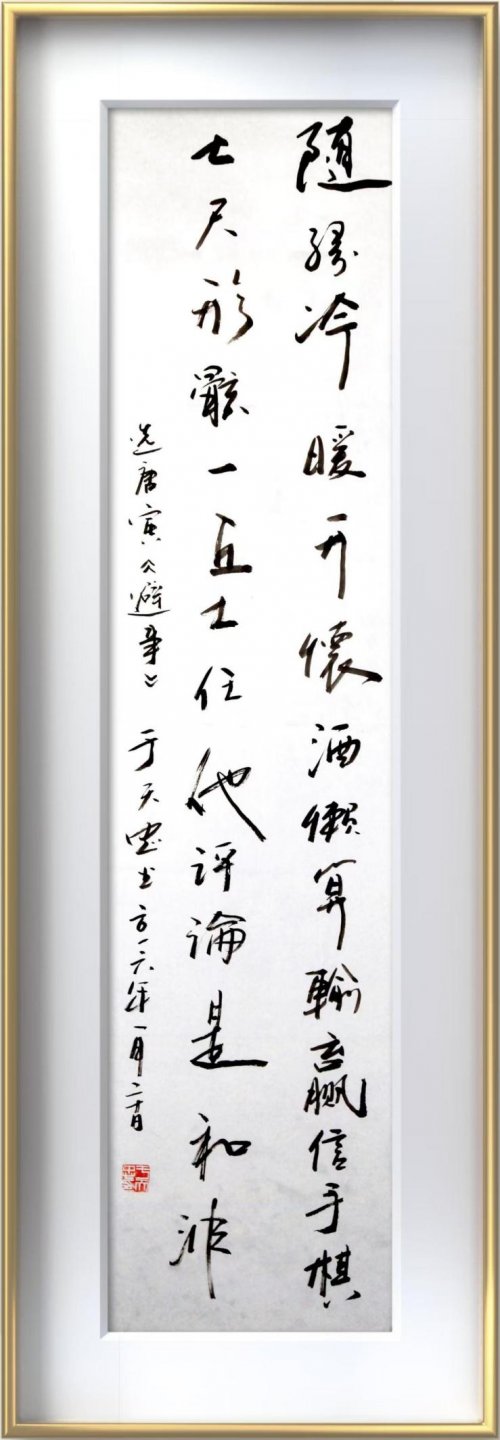 随缘冷暖开懷酒懶算輸赢信手棋
七尺形骸一丘土任他評論是和非
选唐寅《避事》 于天忠书 二〇一六年一月二十日